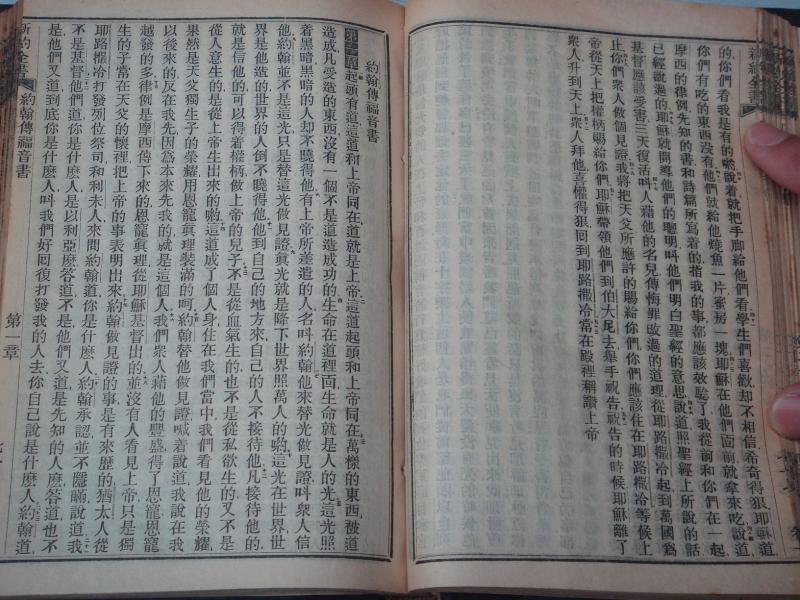 的你們看我是有的喲說着就把手脚給他們看學生們喜歡却不相信希奇得狠耶穌道
你們有吃的東西沒有他們就給他燒魚一片蜜房一塊耶穌在他們面前就拿來吃說道
摩西的律例先知的書和詩篇所寫着的指我的事都應該效驗了我從前和你們在一起
已經說過的耶穌就開導他們的聰明叫他們明白聖經的意思說道照聖經上所說的話
基督應該受害三天復活叫人藉他的名兒傳悔罪改過的道理從耶路撒冷起到萬國爲
止你們衆人做個見證我將把天父所應許的賜給你們你們應該住在耶路撒冷等候上
帝從天上把權柄賜給你們耶穌帶領他們到伯大尼去舉手祝告祝告的時候耶穌離了
衆人升到天上衆人拜他喜懽得狠回到耶路撒冷當在殿裡稱讚上帝
約翰傳福音書
第一章起頭有道這道和上帝同在道就是上帝這道起頭和上帝同在萬樣的東西被道
造成凡受造的東西沒有一個不是道造成功的生命在道裡面生命就是人的光這光照
着黑暗黑暗的人却不曉得他有上帝所差遣的人名叫約翰他來替光做見證叫衆人信
他約翰並不是這光只是替這光做見證眞光就是降下世界照萬人的喲這光在世界世
界是他造的世界的人倒不曉得他他到自己的地方來自己的人不接待他凡接待他的
就是信他的可以得着權柄做上帝的兒子不是從血氣生的也不是從私欲生的又不是
從人意生的是從上帝生出來的喲這道成了個人身住在我們當中我們看見他的榮耀
果然是天父獨生子的榮耀用恩寵眞理裝滿的呵約翰替他做見證喊着說道我說在我
以後來的反在我先因爲本來先我的就是這個人我們衆人藉他的豐盛得了恩寵恩寵
越發的多律例是摩西傳下來的恩寵眞理從耶穌基督出的並沒有人看見上帝只是獨
生的子當在天父的懷裡把上帝的事表明出來約翰做見證的事是有來歷的猶太人從
耶路撒冷打發列位祭司和利未人來問約翰道你是什麽人約翰承認並不隱瞞說道我
不是基督他們道你是什麽人是以利亞麽答道不是他們又道是先知的人麽答道也不
是他們又道到底你是什麽人叫我們好回復打發我的人去你自己說是什麽人約翰道
新約全書 約翰傳福音書 第一章